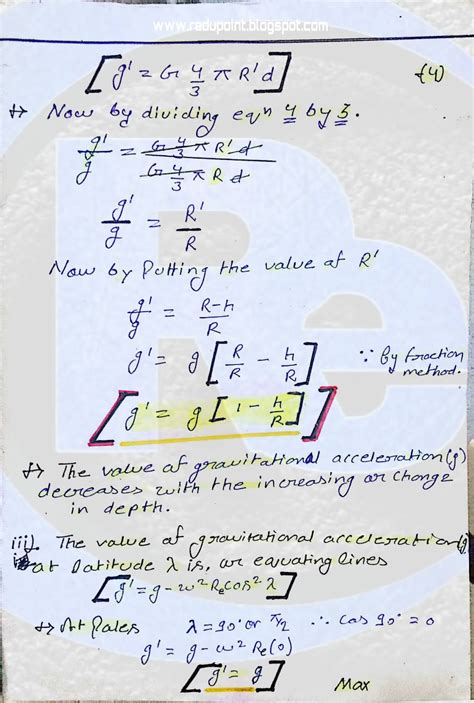 www.redupoint.blogspot.com
[g' = G 4/3 π R'd] (4)
↬ Now by dividing eqn 4 by 3.
g'/g = G 4/3 π R' d / G 4/3 π R d
g'/g = R'/R
Now by Putting the value of R'
g'/g = R-h/R
g' = g [R/R - h/R] ∵ By fraction
method.
[g' = g [1 - h/R]]
↬ The value of gravitational acceleration(g)
decreases with the increasing or change
in depth.
iii). The value of gravitational acceleration(g)
at latitude λ is, or equating lines
[g' = g - w² Re cos² λ]
↬ At Poles λ = 90° or π/2 ∴ Cos 90° = 0
g' = g - w² Re(0)
[g' = g] Max